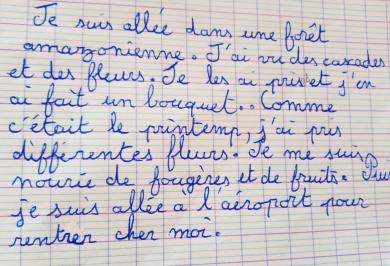 Je suis allée dans une forêt
amazonienne. J'ai vu des cascades
et des fleurs. Je les ai pris et j'en
ai fait un bouquet.. Comme
c'était le printemp, j'ai pris
différentes fleurs. Je me suis
nourie de fougères et de fruits. Puis
je suis allée à l'aéroport pour
rentrer cher moi.